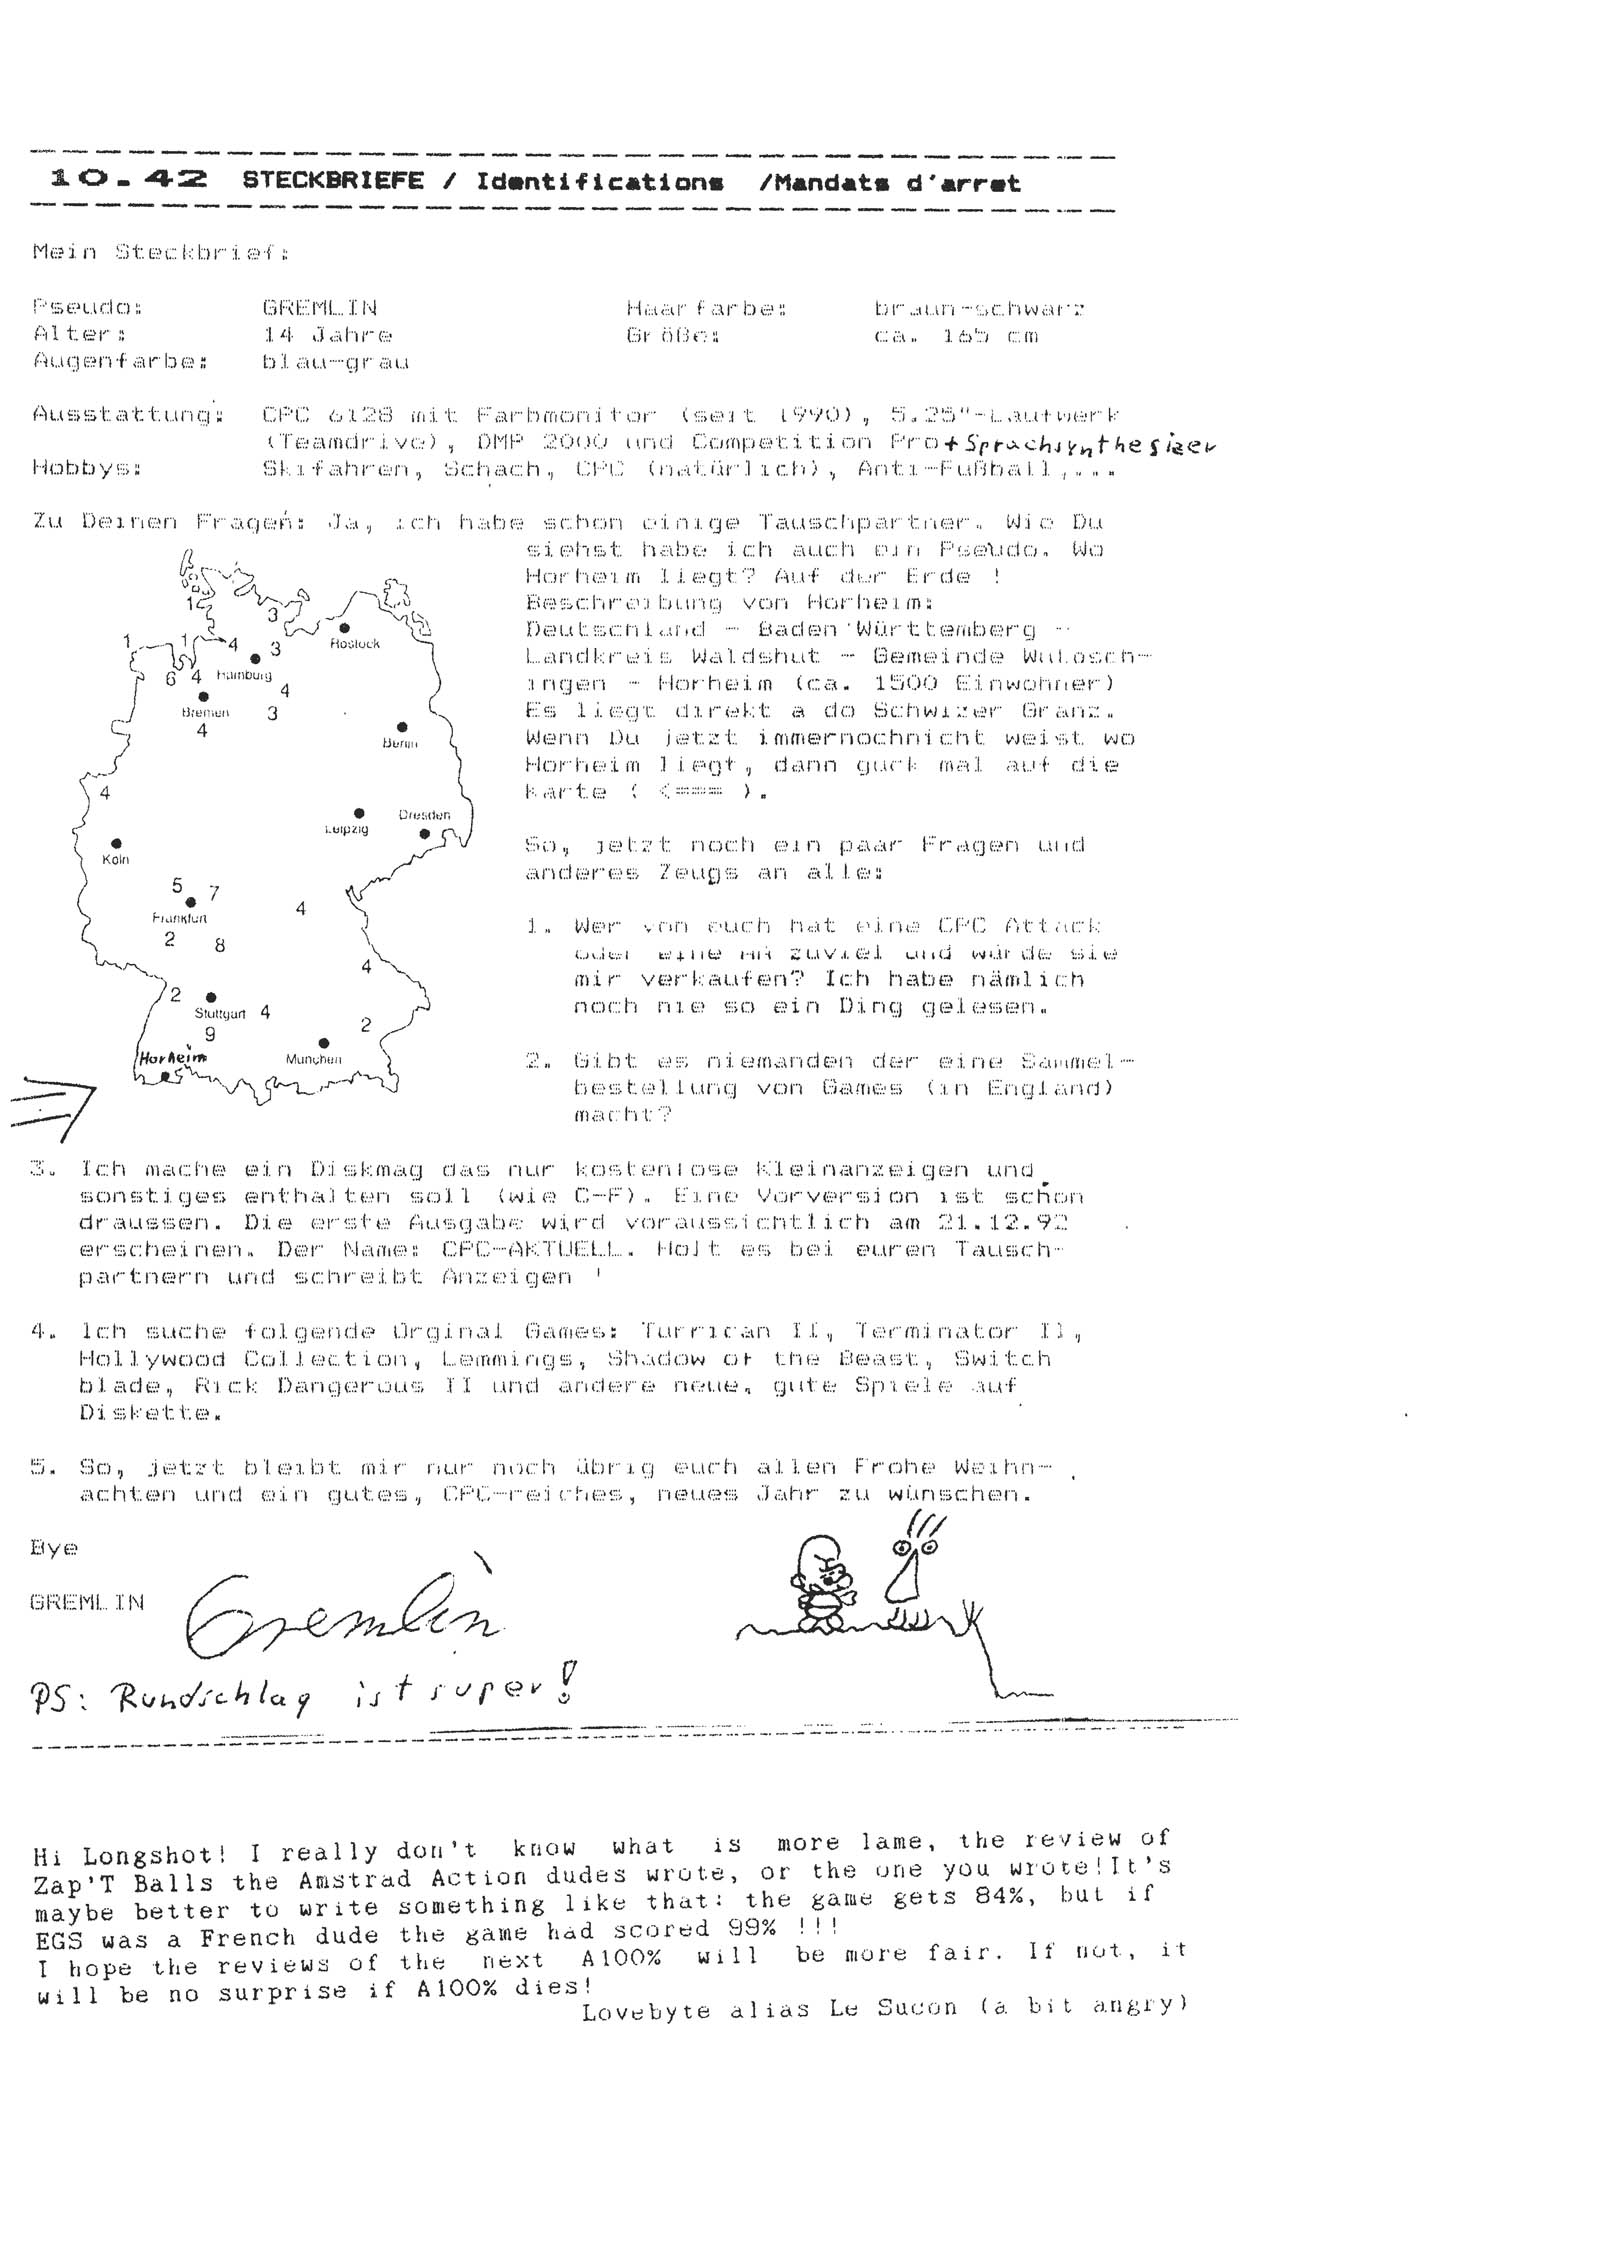 10.42 STECKBRIEFE / Identifications /Mandats d'arret
Mein Steckbrief:
Pseudo: GREMLIN Haarfarbe: braun-schwarz
Alter: 14 Jahre Größe: ca. 165 cm
Augenfarbe: blau-grau
Ausstattung: CPC 6128 mit Farbmonitor (seit 1990), 5.25"-Laufwerk
(Teamdrive), DMP 2000 und Competition Pro + Sprachsynthesizer
Hobbys: Skifahren, Schach, CPC (natürlich), Anti-Fußball,...
Zu Deinen Fragen: Ja, ich habe schon einige Tauschpartner. Wie Du
siehst habe ich auch ein Pseudo. Wo
Horheim liegt? Auf der Erde !
Beschreibung von Horheim:
Deutschland - Baden Württemberg -
Landkreis Waldshut - Gemeinde Wutösch-
ingen - Horheim (ca. 1500 Einwohner)
Es liegt direkt a do Schwizer Granz.
Wenn Du jetzt immernochnicht weist wo
Horheim liegt, dann guck mal auf die
Karte ( <=== ).
So, jetzt noch ein paar Fragen und
anderes Zeugs an alle:
1. Wer von euch hat eine CPC Attack
oder eine AA zuviel und würde sie
mir verkaufen? Ich habe nämlich
noch nie so ein Ding gelesen.
2. Gibt es niemanden der eine Sammel-
bestellung von Games (in England)
macht?
1
3
Rostock
1
1
4
3
6
4
Hamburg
4
Bremen
3
4
Berlin
4
Leipzig
Dresden
Köln
5
7
Frankfurt
4
2
8
4
2
Stuttgart
4
9
2
Horheim
München
3. Ich mache ein Diskmag das nur kostenlose Kleinanzeigen und
sonstiges enthalten soll (wie C-F). Eine Vorversion ist schon
draussen. Die erste Ausgabe wird voraussichtlich am 21.12.92
erscheinen. Der Name: CPC-AKTUELL. Holt es bei euren Tausch-
partnern und schreibt Anzeigen !
4. Ich suche folgende Orginal Games: Turrican II, Terminator II,
Hollywood Collection, Lemmings, Shadow of the Beast, Switch
blade, Rick Dangerous II und andere neue, gute Spiele auf
Diskette.
5. So, jetzt bleibt mir nur noch übrig euch allen Frohe Weihn-
achten und ein gutes, CPC-reiches, neues Jahr zu wünschen.
Bye
GREMLIN Gremlin
PS: Rundschlag ist super!
Hi Longshot! I really don't know what is more lame, the review of
Zap'T Balls the Amstrad Action dudes wrote, or the one you wrote!It's
maybe better to write something like that: the game gets 84%, but if
EGS was a French dude the game had scored 99% !!!
I hope the reviews of the next A100% will be more fair. If not, it
will be no surprise if A100% dies!
Lovebyte alias Le Sucon (a bit angry)